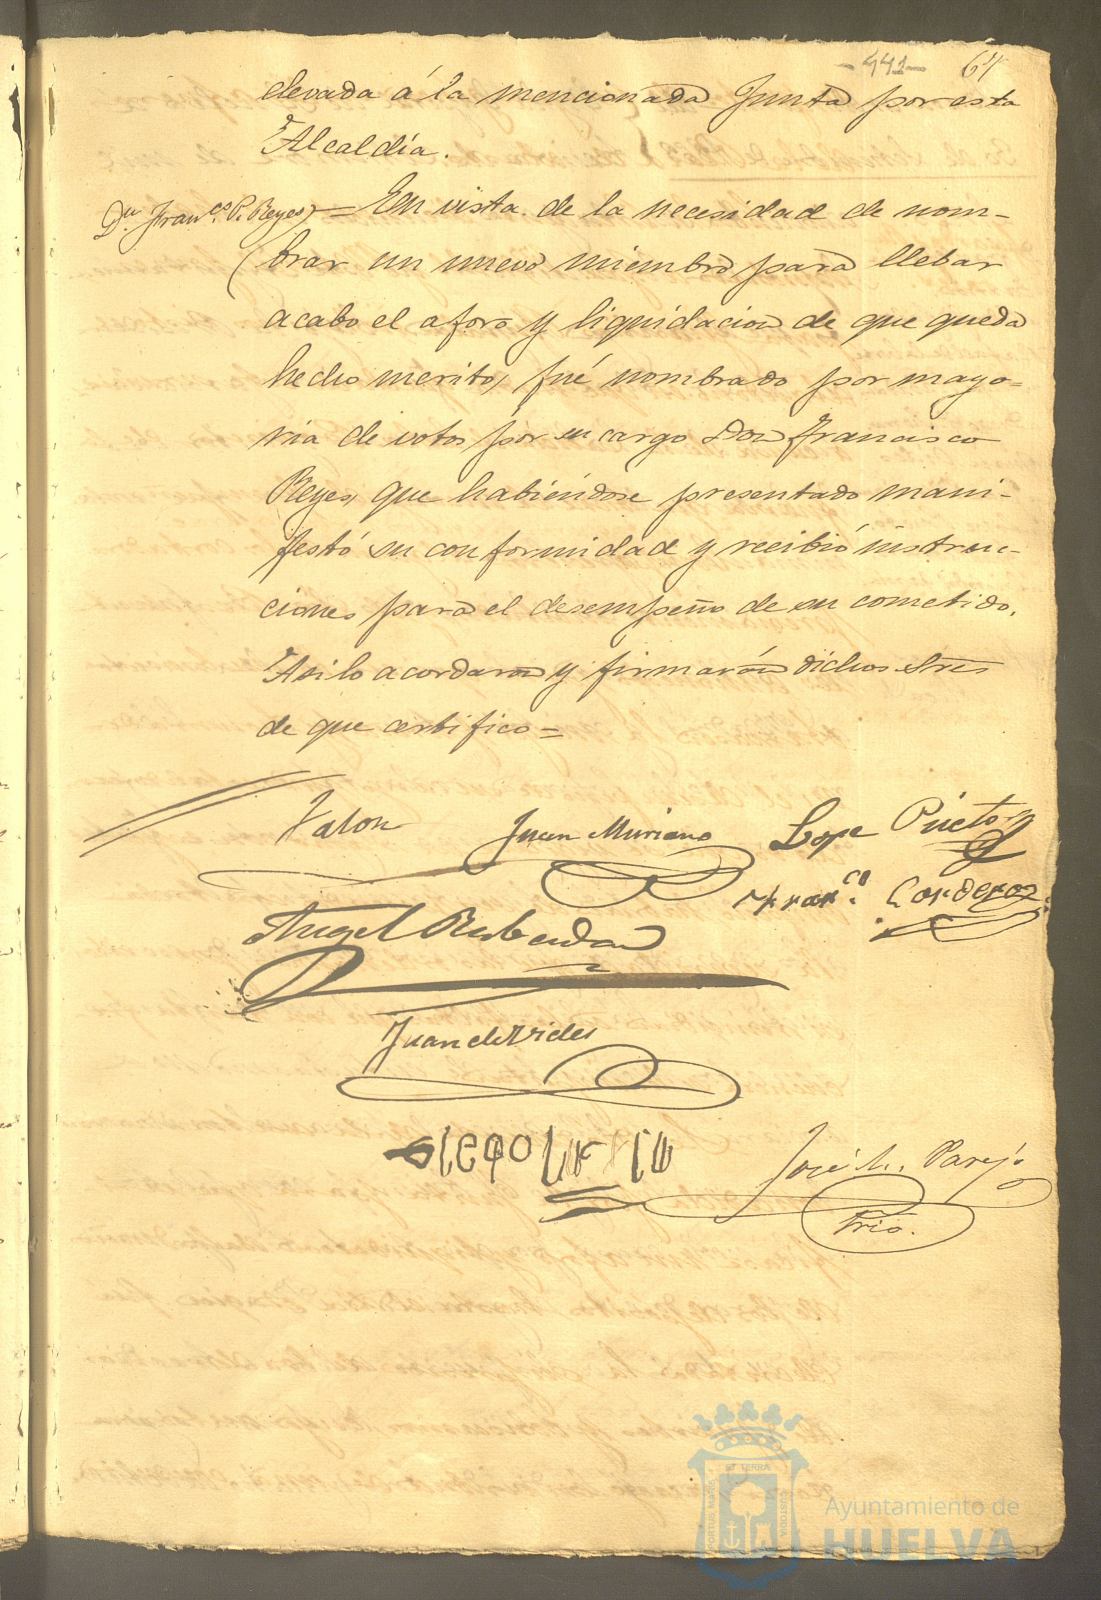 -442- 64
elevada á la mencionada Junta por esta
Alcaldía.
Dn. Franco. P. Reyes) = En vista de la necesidad de nom-
brar un nuevo miembro para llebar
acabo el aforo y liquidacion de que queda
hecho merito, fué nombrado por mayo-
ria de votos por su cargo Don Francisco
Reyes, que habiéndose presentado mani-
festó su conformidad y recibió instruc-
ciones para el desempeño de su cometido.
Asi lo acordaron y firmarón dichos Sres
de que certifico=
Juan Muriano Lope Prieto y
Franco. Cordero
Angel
Juan de Vides
José M. Parejo
Srio.
PORTUS MARIS ET TERRÆ CUSTODIA
Ayuntamiento de
HUELVA